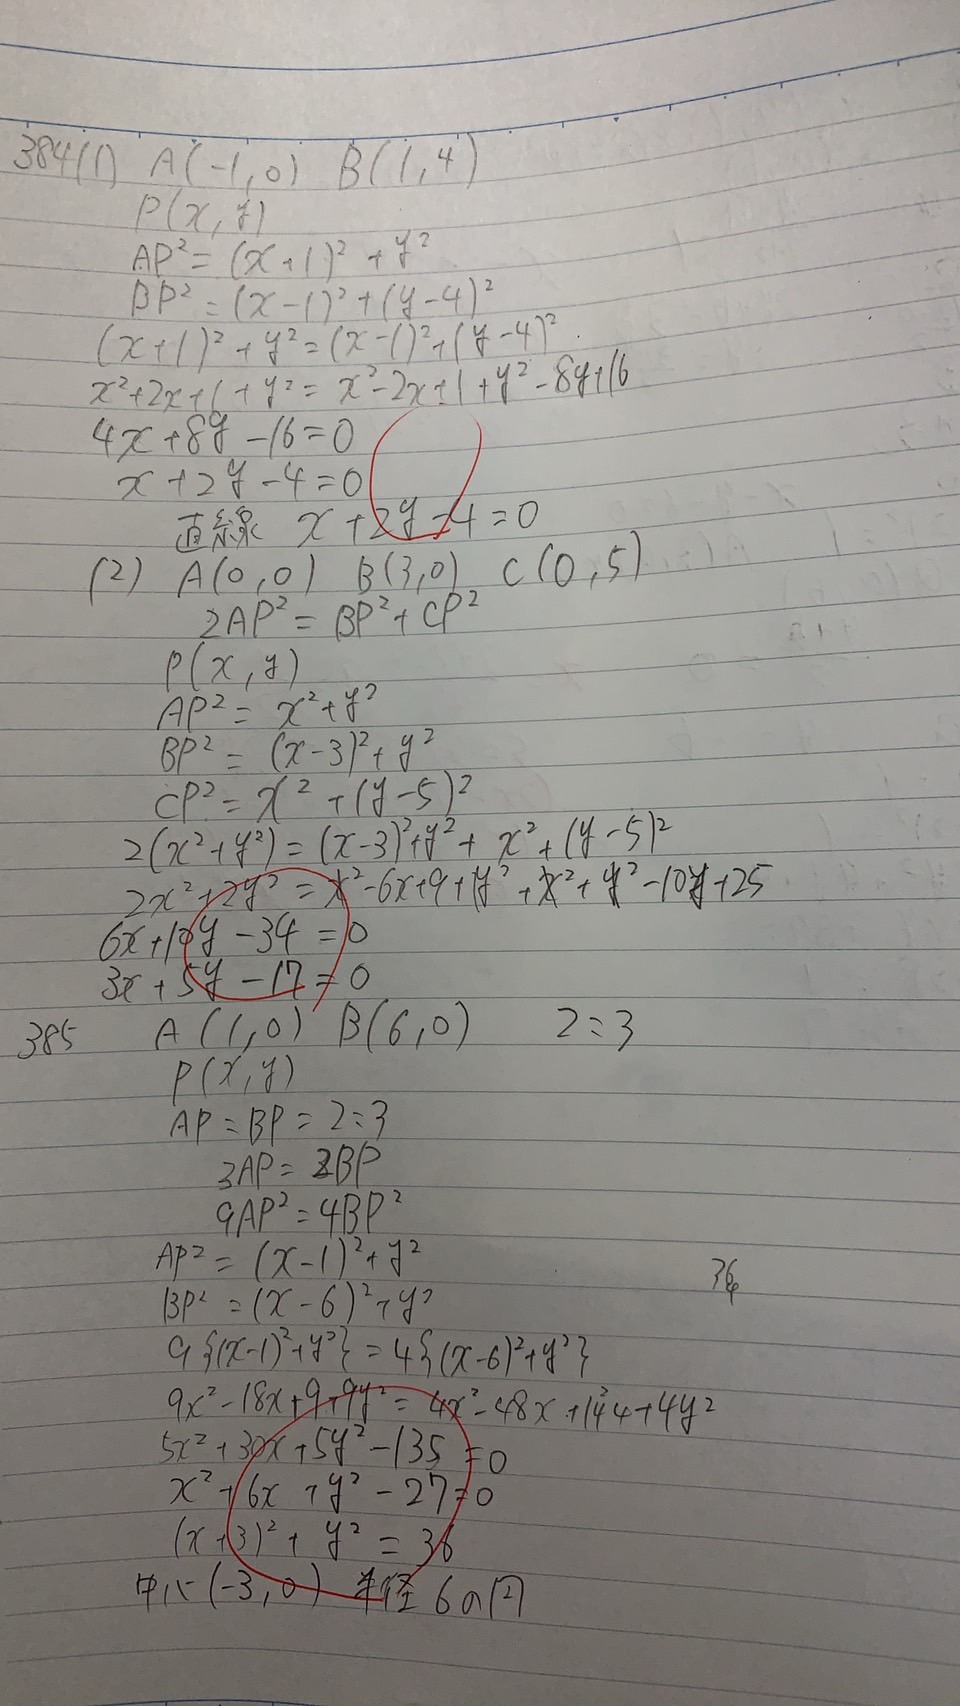 384(1) A(-1,0) B(1,4)
P(x,y)
AP²=(x+1)²+y²
BP²=(x-1)²+(y-4)²
(x+1)²+y²=(x-1)²+(y-4)²
x²+2x+1+y²=x²-2x+1+y²-8y+16
4x+8y-16=0
x+2y-4=0
直線 x+2y-4=0
(2) A(0,0) B(3,0) C(0,5)
2AP²=BP²+CP²
P(x,y)
AP²=x²+y²
BP²=(x-3)²+y²
CP²=x²+(y-5)²
2(x²+y²)=(x-3)²+y²+x²+(y-5)²
2x²+2y²=x²-6x+9+y²+x²+y²-10y+25
6x+10y-34=0
3x+5y-17=0
385 A(1,0) B(6,0) 2:3
P(x,y)
AP:BP=2:3
3AP=2BP
9AP²=4BP²
AP²=(x-1)²+y²
BP²=(x-6)²+y²
9{(x-1)²+y²}=4{(x-6)²+y²}
9x²-18x+9+9y²=4x²-48x+144+4y²
5x²+30x+5y²-135=0
x²+6x+y²-27=0
(x+3)²+y²=36
中心(-3,0) 半径6の円